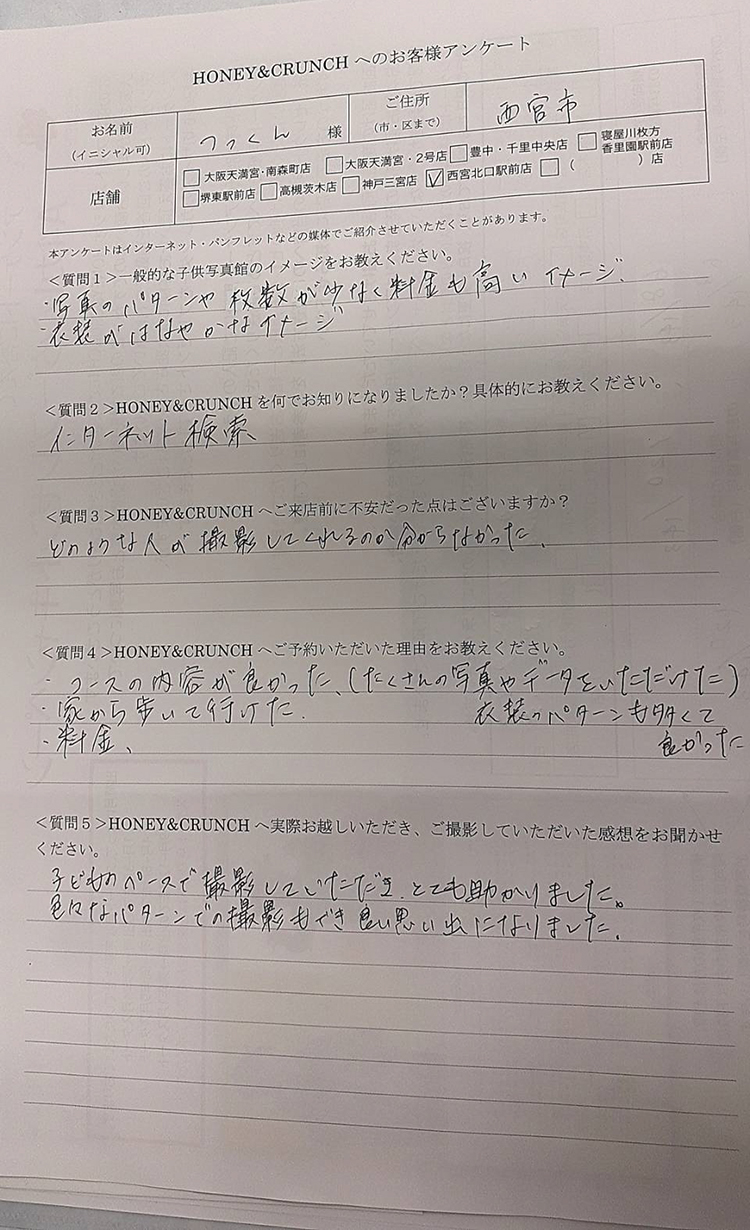 HONEY&CRUNCH へのお客様アンケート
お名前
(イニシャル可)
つっくん 様
ご住所
(市・区まで)
西宮市
店舗
大阪天満宮・南森町店 大阪天満宮・2号店 豊中・千里中央店 寝屋川枚方香里園駅前店
堺東駅前店 高槻茨木店 神戸三宮店 西宮北口駅前店 ( )店
本アンケートはインターネット・パンフレットなどの媒体でご紹介させていただくことがあります。
<質問1>一般的な子供写真館のイメージをお教えください。
・写真のパターンや枚数が少なく料金も高いイメージ.
・衣装がはなやかなイメージ
<質問2>HONEY&CRUNCH を何でお知りになりましたか?具体的にお教えください。
インターネット検索
<質問3>HONEY&CRUNCH へご来店前に不安だった点はございますか?
どのような人が撮影してくれるのか分からなかった、
<質問4>HONEY&CRUNCH へご予約いただいた理由をお教えください。
・コースの内容が良かった、(たくさんの写真やデータをいただけた)
・家から歩いて行けた. 衣装のパターンも多くて
・料金、 良かった
<質問5>HONEY&CRUNCH へ実際お越しいただき、ご撮影していただいた感想をお聞かせ
ください。
子どものペースで撮影していただき、とても助かりました。
色々なパターンでの撮影もでき良い思い出になりました.